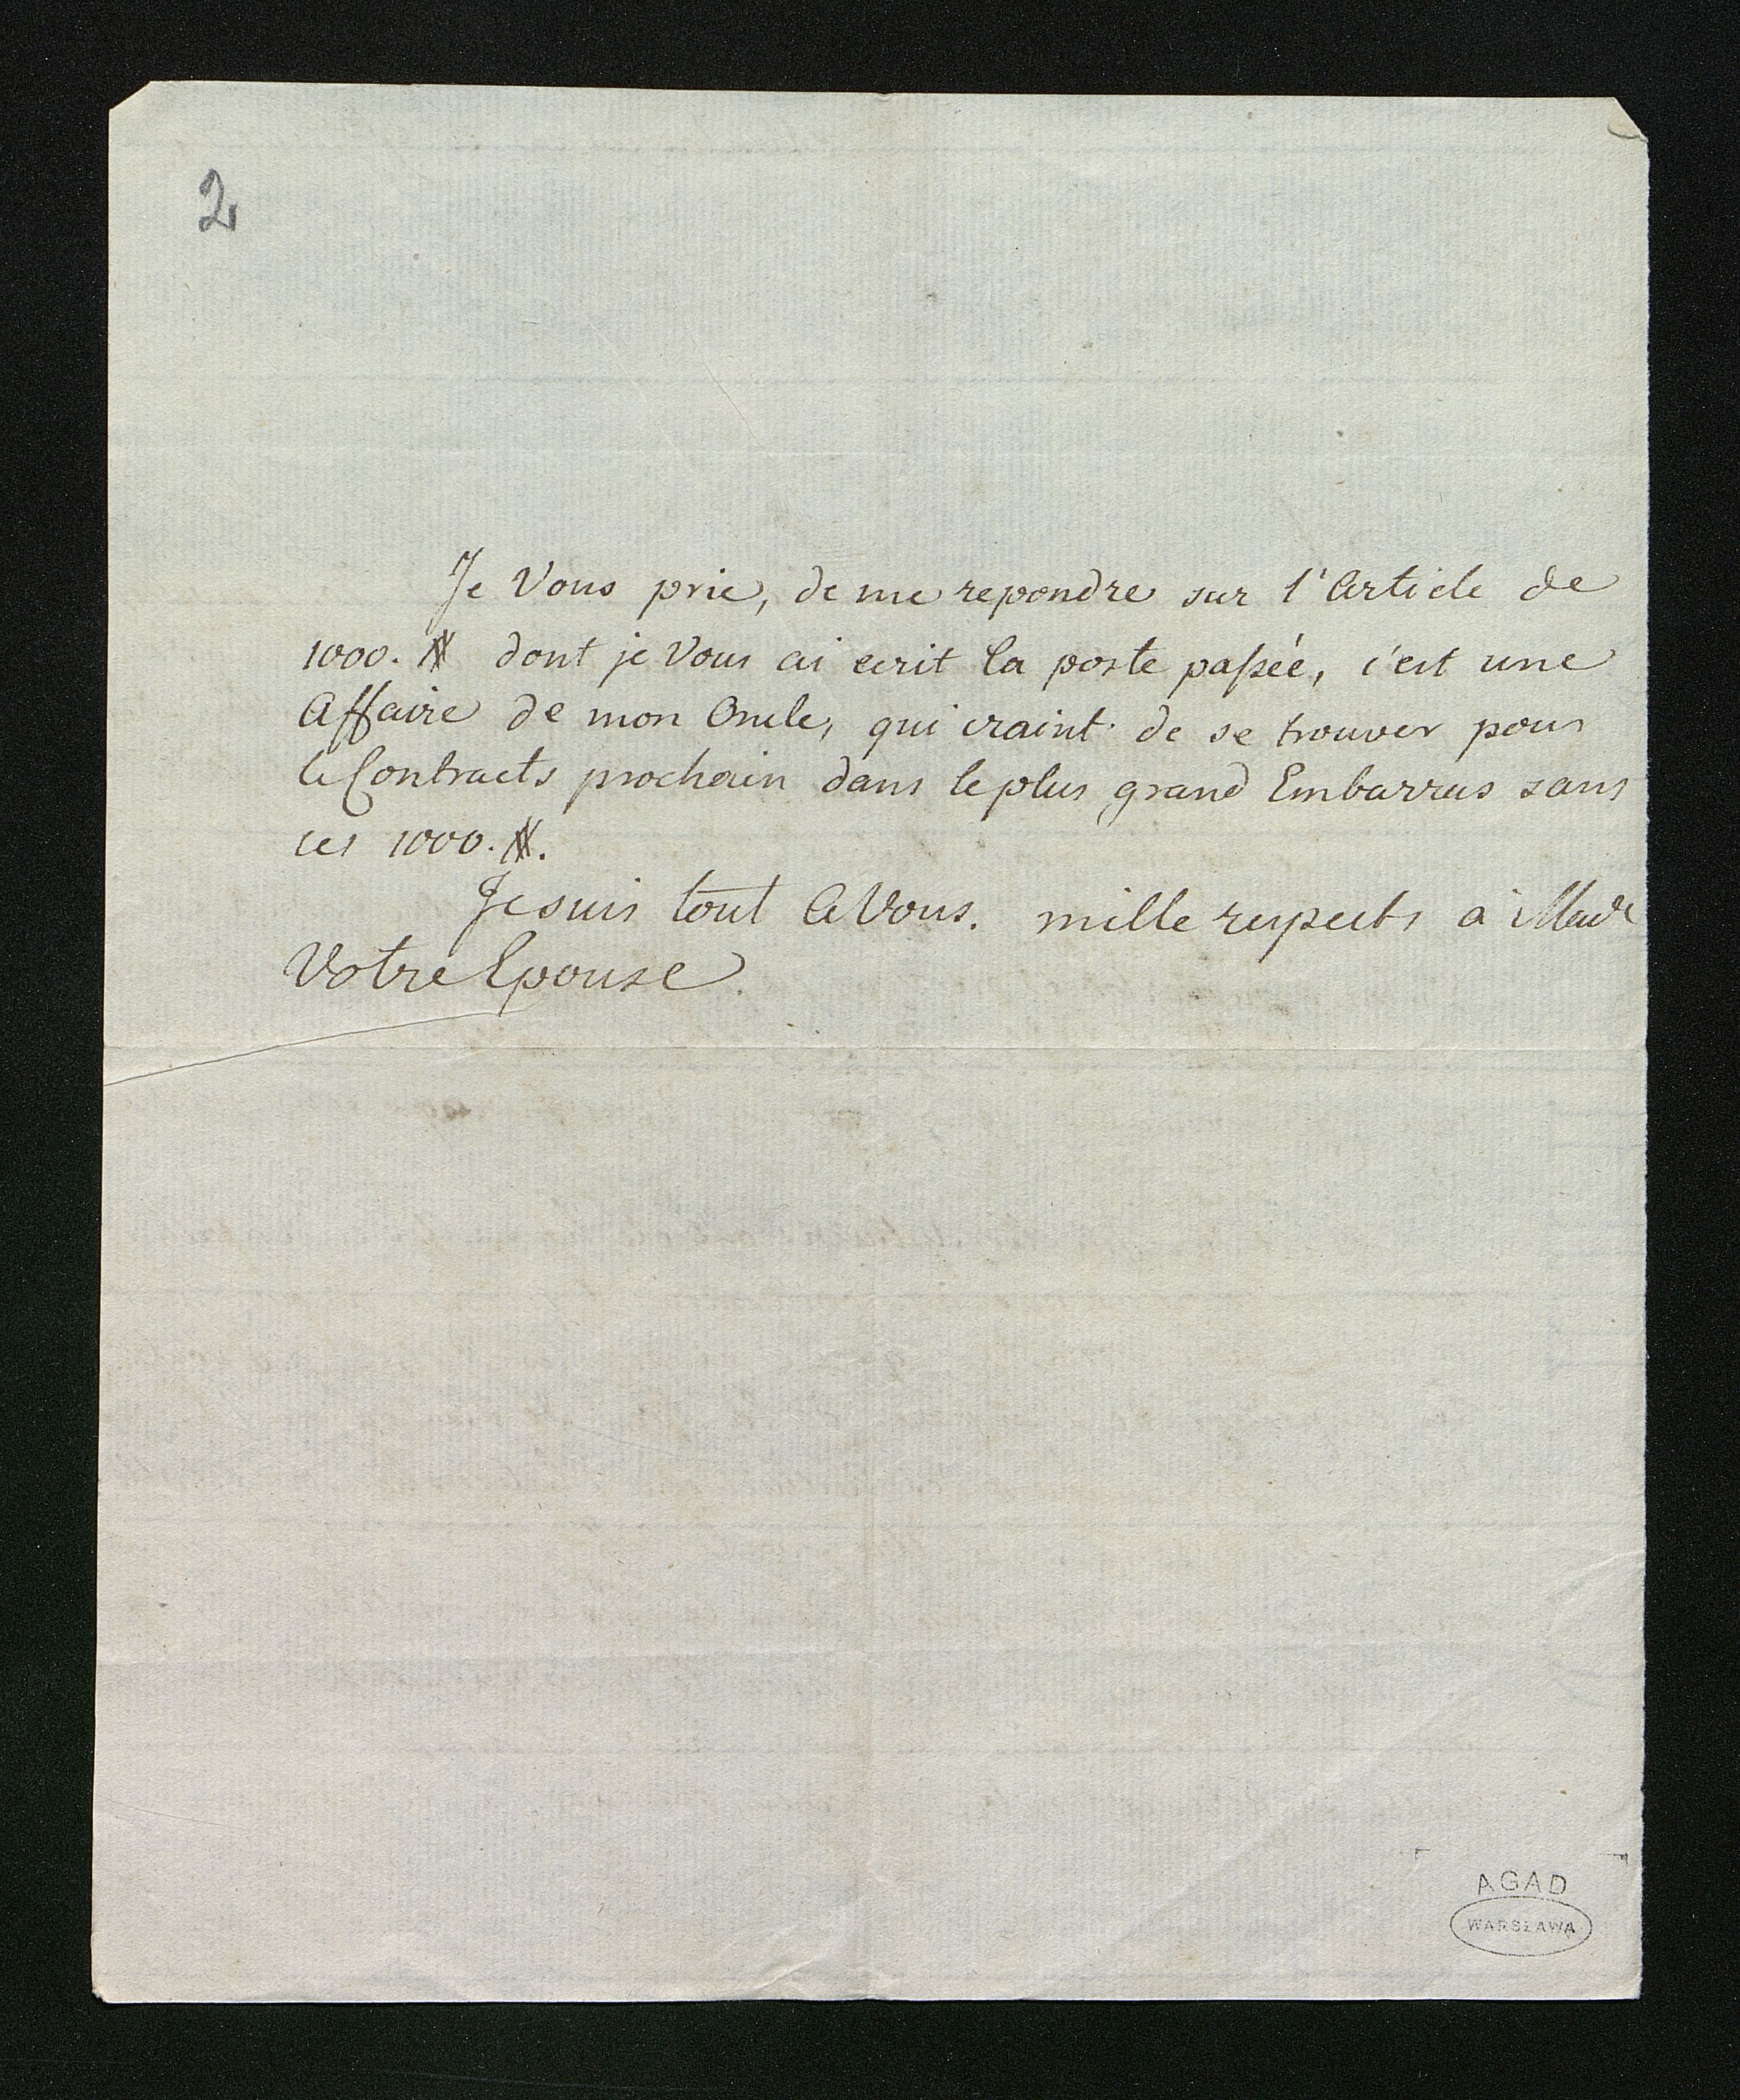 2
Je Vous prie, de me repondre sur l'Article de
1000. # dont je Vous ai ecrit la poste passée, c'est une
Affaire de mon Oncle, qui craint de se trouver pour
le Contracts prochain dans le plus grand Embarras sans
ces 1000. #.
Je suis tout A Vous. mille respects a Made
Votre Epouse.
AGAD
WARSZAWA